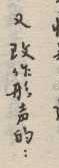 又改作形声的：